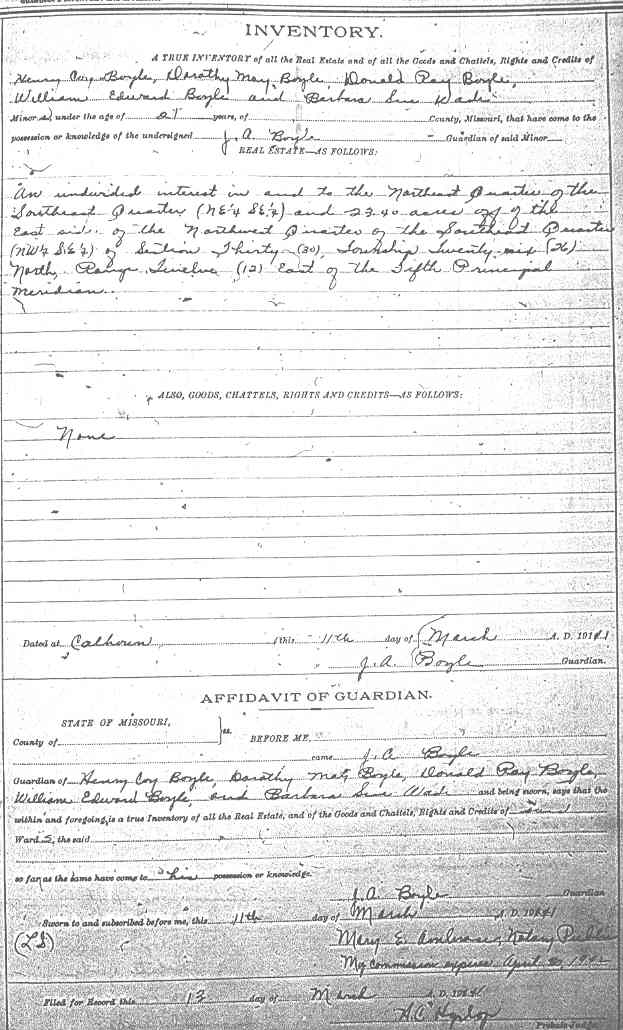 INVENTORY.
A TRUE INVENTORY of all the Real Estate and of all the Goods and Chattels, Rights and Credits of
Henry Coy Boyle, Dorothy May Boyle, Donald Ray Boyle,
William Edward Boyle and Barbara Sue Wade
Minors, under the age of 21 years, of County, Missouri, that have come to the
possession or knowledge of the undersigned J. A. Boyle Guardian of said Minor
REAL ESTATE—AS FOLLOWS:
An undivided interest in and to the Northeast Quarter of the
Southeast Quarter (NE¼ SE¼) and 23.40 acres off of the
East side of the Northwest Quarter of the Southeast Quarter
(NW¼ SE¼) of Section Thirty (30), Township Twenty six (26)
North, Range Twelve (12) East of the Fifth Principal
Meridian.
ALSO, GOODS, CHATTELS, RIGHTS AND CREDITS—AS FOLLOWS:
None
Dated at Calhoun, this 11th day of March A. D. 1941
J. A. Boyle Guardian.
AFFIDAVIT OF GUARDIAN.
STATE OF MISSOURI,
County of ss. BEFORE ME,
came J. A. Boyle
Guardian of Henry Coy Boyle, Dorothy May Boyle, Donald Ray Boyle,
William Edward Boyle, and Barbara Sue Wade and being sworn, says that the
within and foregoing is a true Inventory of all the Real Estate, and of the Goods and Chattels, Rights and Credits of
Wards, the said
so far as the same have come to his possession or knowledge.
J. A. Boyle Guardian
Sworn to and subscribed before me, this 11th day of March A. D. 1941
(LS) Mary E. Ambrose, Notary Public
My commission expires April 1942
Filed for Record this 13 day of March A. D. 1941
Probate Judge